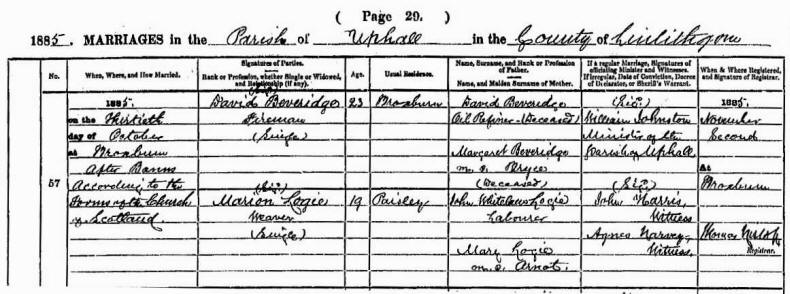 ( Page 29. )
1885. MARRIAGES in the Parish of Uphall in the County of Linlithgow
No.
When, Where, and How Married.
Signatures of Parties.
Rank or Profession, whether Single or Widowed, and Relationship (if any).
Age.
Usual Residence.
Name, Surname, and Rank or Profession of Father.
Name, and Maiden Surname of Mother.
If a regular Marriage, Signatures of officiating Minister and Witnesses.
If irregular, Date of Conviction, Decree of Declarator, or Sheriff's Warrant.
When & Where Registered, and Signature of Registrar.
57
1885.
on the Thirtieth
day of October
at Broxburn
After Banns
According to the
Forms of the Church
of Scotland
(Sig)
David Beveridge
Fireman
(Single)
23
Broxburn
David Beveridge
Oil Refiner (Deceased)
Margaret Beveridge
m.s. Bryce
(Deceased)
(Sig)
Marion Logie
Weaver
(Single)
19
Paisley
John Whitelaw Logie
Labourer
Mary Logie
m.s. Arnot.
(Sig)
William Johnston
Minister of the
Parish of Uphall
(Sig)
John Harris,
Witness
Agnes Harvey,
Witness.
1885.
November
Second
At
Broxburn
Registrar.